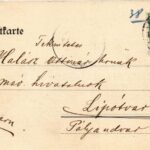 stkarte
38
Tekintetes
Halász Ottovár úrnak
hivatalnok
Lipótvár
Pályaudvar